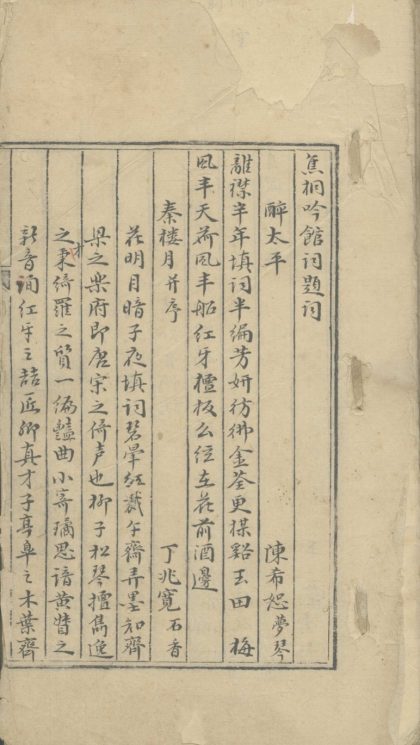 焦桐吟館詞題詞
醉太平 陳希恕 夢琴
離襟半年填詞半編芳妍彷彿金荃更楳谿玉田 梅
風半天荷風半船紅牙檀板么弦在花前酒邊
秦楼月并序 丁兆寬 石香
花明月暗子夜填詞碧暈紅裁午齋弄墨知齊
梁之樂府即唐宋之倚声也柳子松琴擅雋逸
之才秉綺羅之質一編豔曲小寄璚思諳黄荃之
新音詞紅牙之喆匠仰真才子亭皋之木葉齊